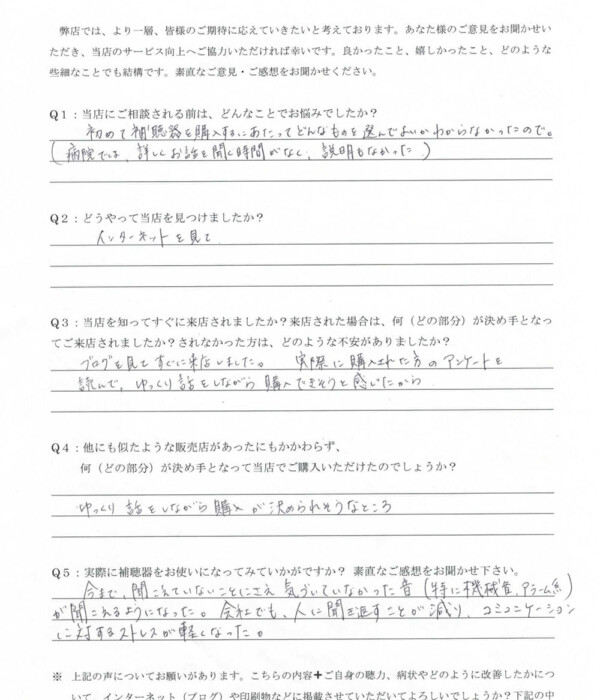 弊店では、より一層、皆様のご期待に応えていきたいと考えております。あなた様のご意見をお聞かせい
ただき、当店のサービス向上へご協力いただければ幸いです。良かったこと、嬉しかったこと、どのような
些細なことでも結構です。素直なご意見・ご感想をお聞かせください。
Q1：当店にご相談される前は、どんなことでお悩みでしたか？
初めて補聴器を購入するにあたってどんなものを選んでよいかわからなかったので。
(病院では、詳しくお話を聞く時間がなく、説明もなかった)
Q2：どうやって当店を見つけましたか？
インターネットを見て
Q3：当店を知ってすぐに来店されましたか？来店された場合は、何（どの部分）が決め手となっ
てご来店されましたか？されなかった方は、どのような不安がありましたか？
ブログを見てすぐに来店しました。 実際に購入された方のアンケートを
読んで、ゆっくり話をしながら購入できそうと感じたから
Q4：他にも似たような販売店があったにもかかわらず、
何（どの部分）が決め手となって当店でご購入いただけたのでしょうか？
ゆっくり話をしながら購入が決められそうなところ
Q5：実際に補聴器をお使いになってみていかがですか？ 素直なご感想をお聞かせ下さい。
今まで、聞こえていないことにさえ気づいていなかった音(特に機械音、アラーム系)
が聞こえるようになった。会社でも、人に聞き返すことが減り、コミュニケーション
に対するストレスが軽くなった。
※ 上記の声についてお願いがあります。こちらの内容＋ご自身の聴力、病状やどのように改善したかにつ
いて、インターネット（ブログ）や印刷物などに掲載させていただいてよろしいでしょうか？下記の中